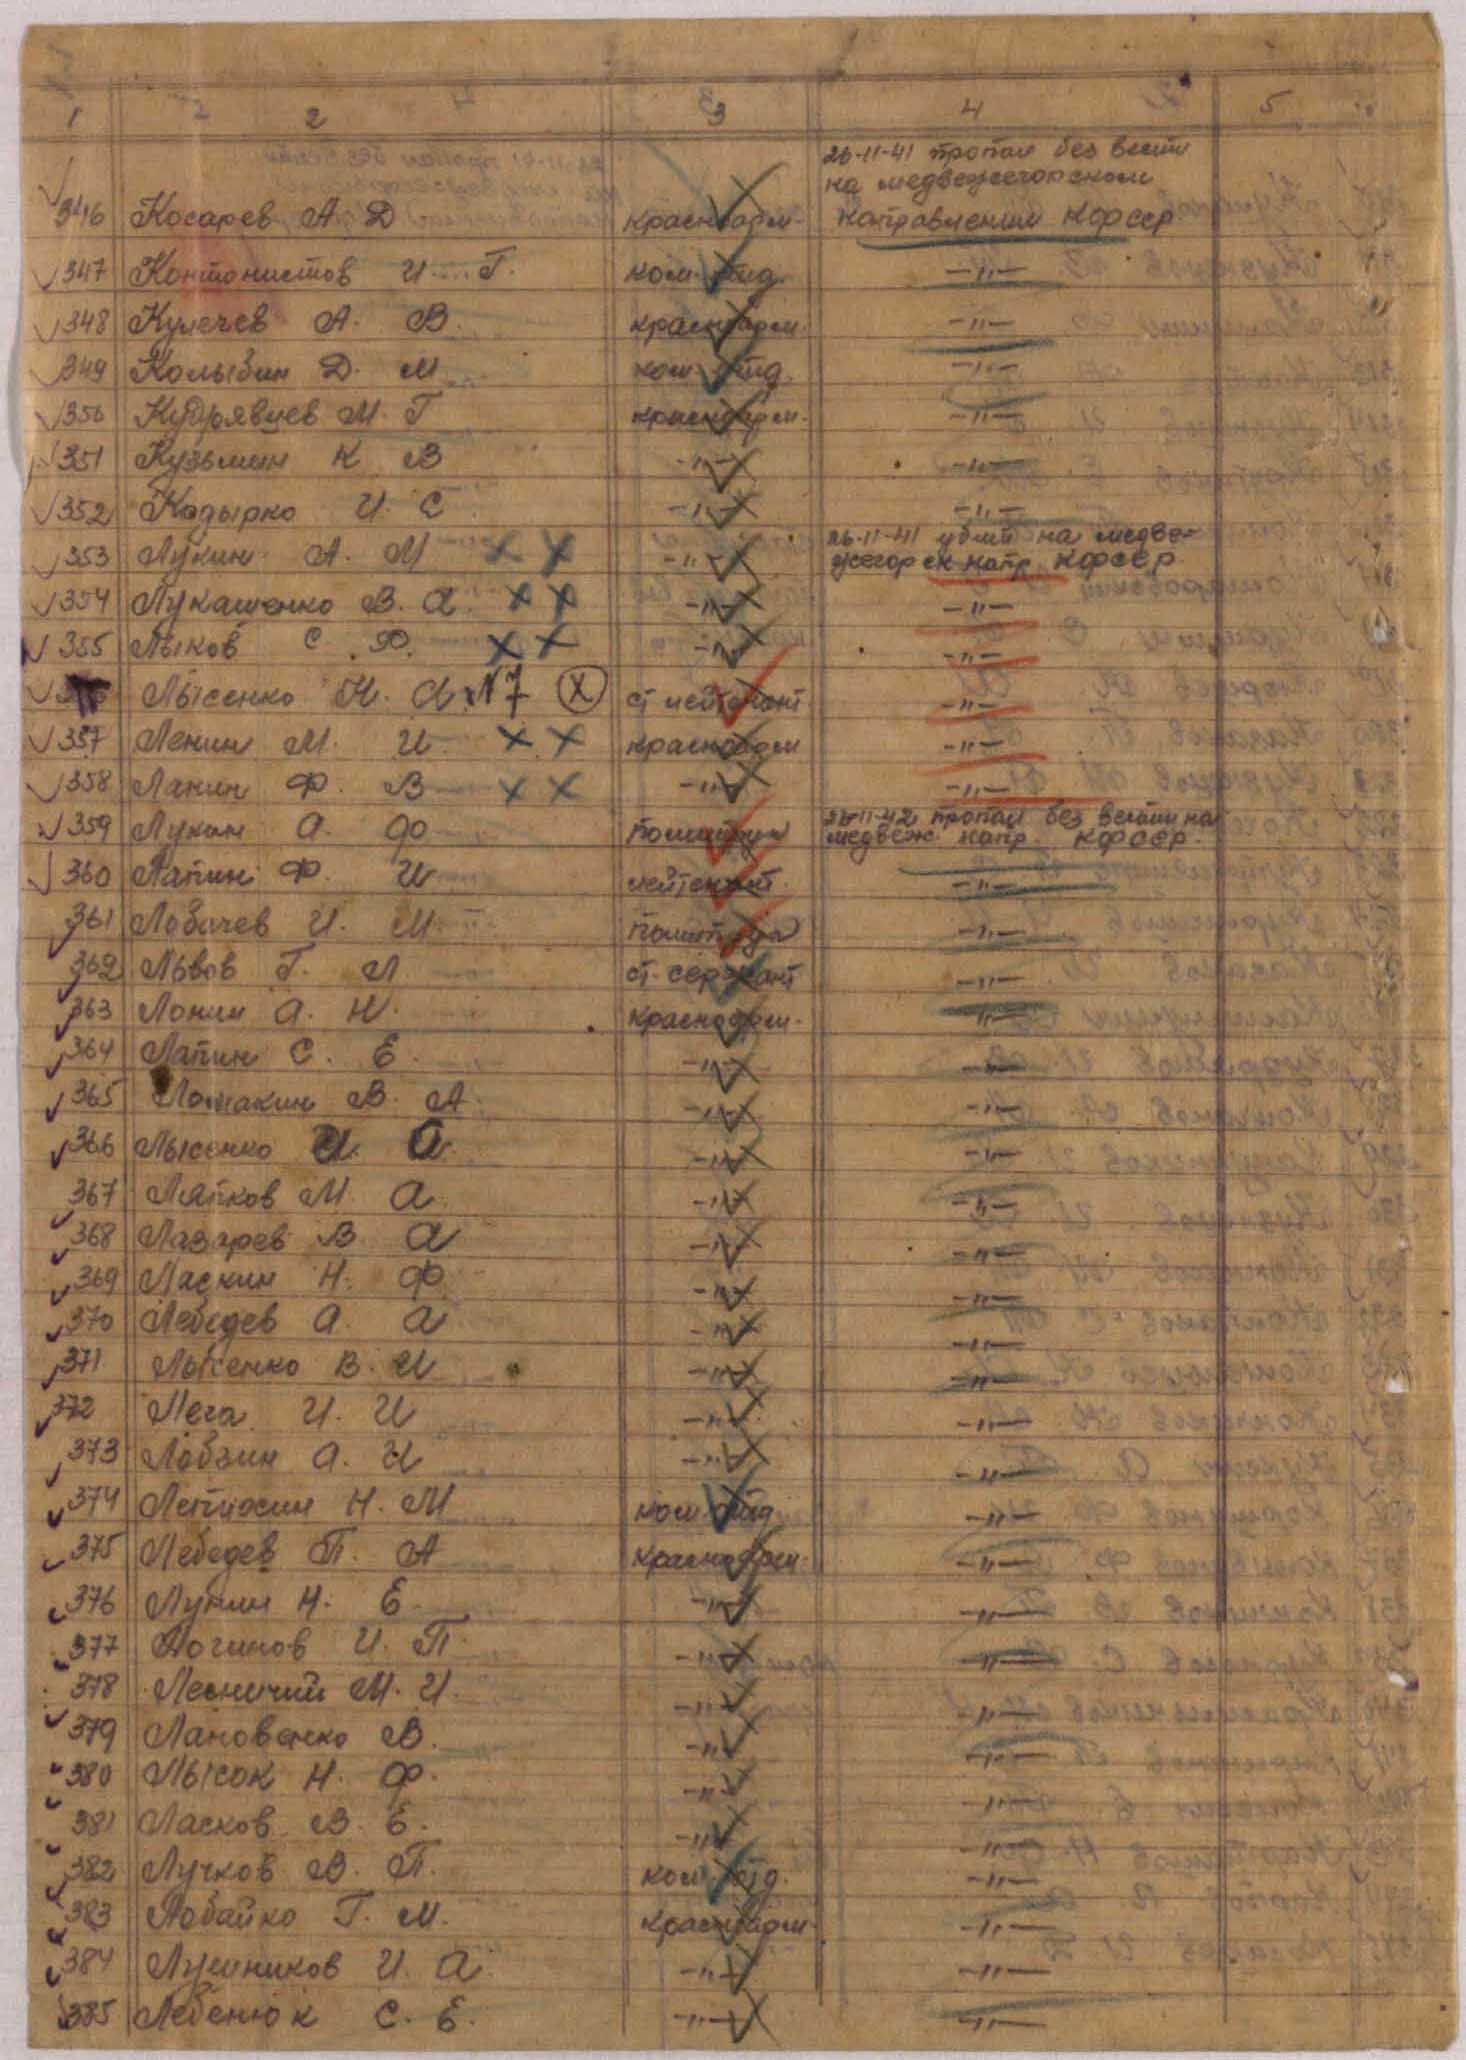 1 2 3 4 5
26-11-41 пропал без вести
на медвежегорском
346 Косарев А Д красноарм- направлении КФССР
347 Контонистов И. Г. ком. отд. -"-
348 Кулечев А. В. красноарм. -"-
349 Колыбин Д. М ком. отд. -"-
350 Кудрявцев М. Г красноарм. -"-
351 Кузьмин К В -"- -"-
352 Кадырко И. С -"- -"-
26-11-41 убит на медве-
353 Лукин А. М х х -"- жегорск напр КФССР
354 Лукашенко В. А. х х -"- -"-
355 Лыков С Ф. х х -"- -"-
Лысенко Н. А. №7 х ст лейтенант -"-
357 Ленин М. И х х красноарм -"-
358 Ланин Ф. В х х -"- -"-
359 Лукин А. Ф политрук 26-11-42 пропал без вести на
медвеж. напр КФССР.
360 Лапин Ф. И лейтенант. -"-
361 Лобачев И. М политрук -"-
362 Львов Г. Л ст. сержант -"-
363 Лонин А. Н. красноарм. -"-
364 Лапин С. Е. -"- -"-
365 Ломакин В. А. -"- -"-
366 Лысенко И. А. -"- -"-
367 Ляпков М. А -"- -"-
368 Лазарев В. А -"- -"-
369 Ласкин Н. Ф -"- -"-
370 Лебедев А. А -"- -"-
371 Лысенко В. И -"- -"-
372 Лега И. И -"- -"-
373 Лобзин А. И -"- -"-
374 Лепихин Н. М ком. отд. -"-
375 Лебедев П. А красноарм. -"-
376 Лунин Н. Е. -"- -"-
377 Логинов И. П. -"- -"-
378 Лесничий М. И. -"- -"-
379 Лановенко В. -"- -"-
380 Лысок Н. Ф. -"- -"-
381 Ласков В. Е. -"- -"-
382 Лучков В. П. ком. отд. -"-
383 Лобайко Г. М. красноарм. -"-
384 Лушников И. А. -"- -"-
385 Лебенюк С. Е. -"- -"-